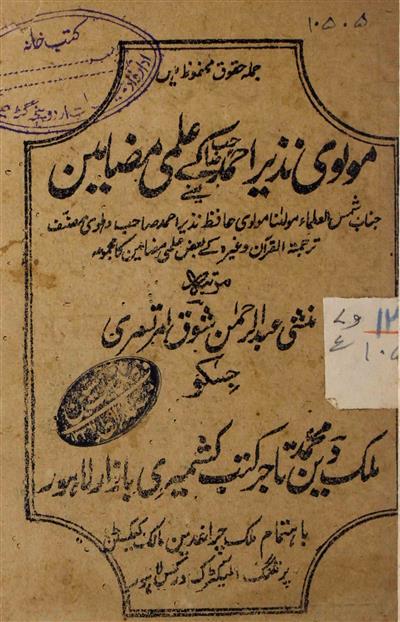 ۱۰۵۰۵
کتب خانہ
جملہ حقوق محفوظ ہیں
مولوی نذیر احمد صاحب کے علمی مضامین
یعنے
جناب شمس العلماء مولٰنا مولوی حافظ نذیر احمد صاحب دہلوی مصنف
ترجمۃ القرآن وغیرہ کے بعض علمی مضامین کا مجموعہ
مرتبہ
منشی عبدالرحمٰن شوق امرتسری
جسکو
ملک دین محمد تاجر کتب کشمیری بازار لاہور
باہتمام ملک چراغدین مالک
پرنٹنگ الیکٹرک ورکس لاہور